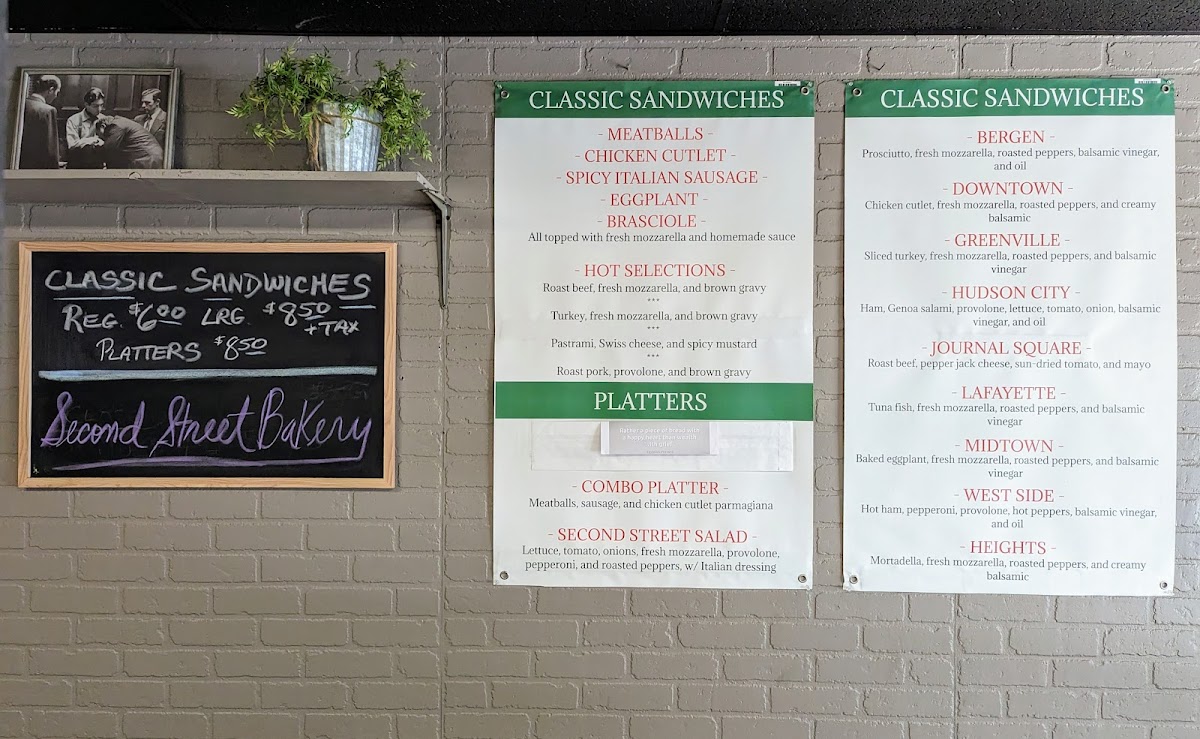 CLASSIC SANDWICHES
REG. $6.00 LRG. $8.50
+ TAX
PLATTERS $8.50
Second Street Bakery
CLASSIC SANDWICHES
- MEATBALLS -
- CHICKEN CUTLET -
- SPICY ITALIAN SAUSAGE -
- EGGPLANT -
- BRASCIOLE -
All topped with fresh mozzarella and homemade sauce
- HOT SELECTIONS -
Roast beef, fresh mozzarella, and brown gravy
***
Turkey, fresh mozzarella, and brown gravy
***
Pastrami, Swiss cheese, and spicy mustard
***
Roast pork, provolone, and brown gravy
PLATTERS
Rather a piece of bread with
a happy heart than wealth
- COMBO PLATTER -
Meatballs, sausage, and chicken cutlet parmagiana
- SECOND STREET SALAD -
Lettuce, tomato, onions, fresh mozzarella, provolone,
pepperoni, and roasted peppers, w/ Italian dressing
CLASSIC SANDWICHES
- BERGEN -
Prosciutto, fresh mozzarella, roasted peppers, balsamic vinegar,
and oil
- DOWNTOWN -
Chicken cutlet, fresh mozzarella, roasted peppers, and creamy
balsamic
- GREENVILLE -
Sliced turkey, fresh mozzarella, roasted peppers, and balsamic
vinegar
- HUDSON CITY -
Ham, Genoa salami, provolone, lettuce, tomato, onion, balsamic
vinegar, and oil
- JOURNAL SQUARE -
Roast beef, pepper jack cheese, sun-dried tomato, and mayo
- LAFAYETTE -
Tuna fish, fresh mozzarella, roasted peppers, and balsamic
vinegar
- MIDTOWN -
Baked eggplant, fresh mozzarella, roasted peppers, and balsamic
vinegar
- WEST SIDE -
Hot ham, pepperoni, provolone, hot peppers, balsamic vinegar,
and oil
- HEIGHTS -
Mortadella, fresh mozzarella, roasted peppers, and creamy
balsamic